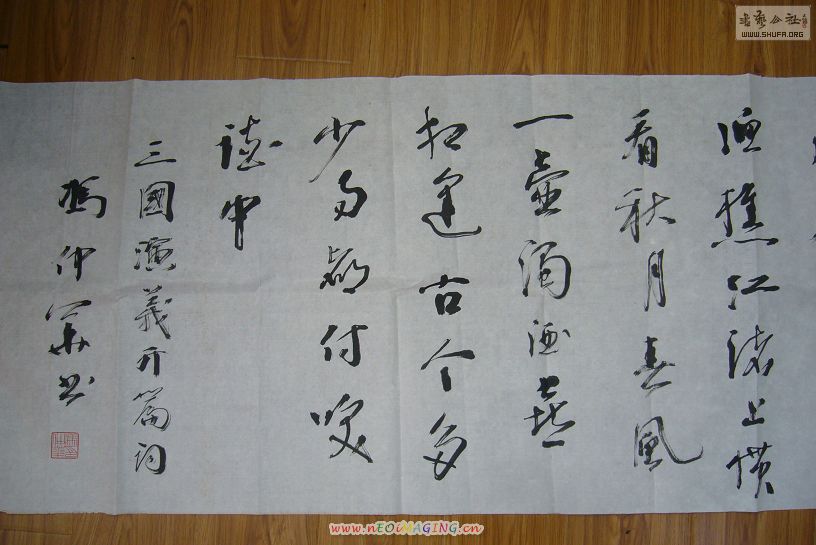 渔樵江渚上惯
看秋月春风
一壶浊酒喜
相逢古今多
少事都付笑
谈中
三國演義开篇词
冯仲华书
書藝公社
WWW.SHUFA.ORG
www.nEOiMAGiNG.cn